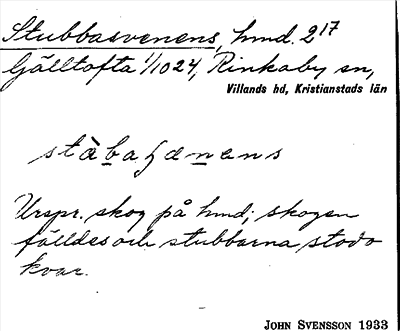 Stubbasvenens, hmd. 2¹⁷
Gälltofta 1/1024, Rinkaby sn,
Villands hd, Kristianstads län
Urspr. skog på hmd; skogen
fälldes och stubbarna stodo
kvar.
JOHN SVENSSON 1933